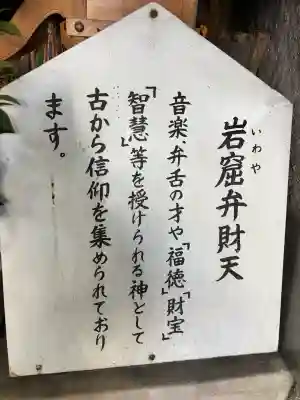 岩窟弁財天
いわや
音楽、弁舌の才や「福徳」「財宝」
「智慧」等を授けられる神として
古から信仰を集められており
ます。